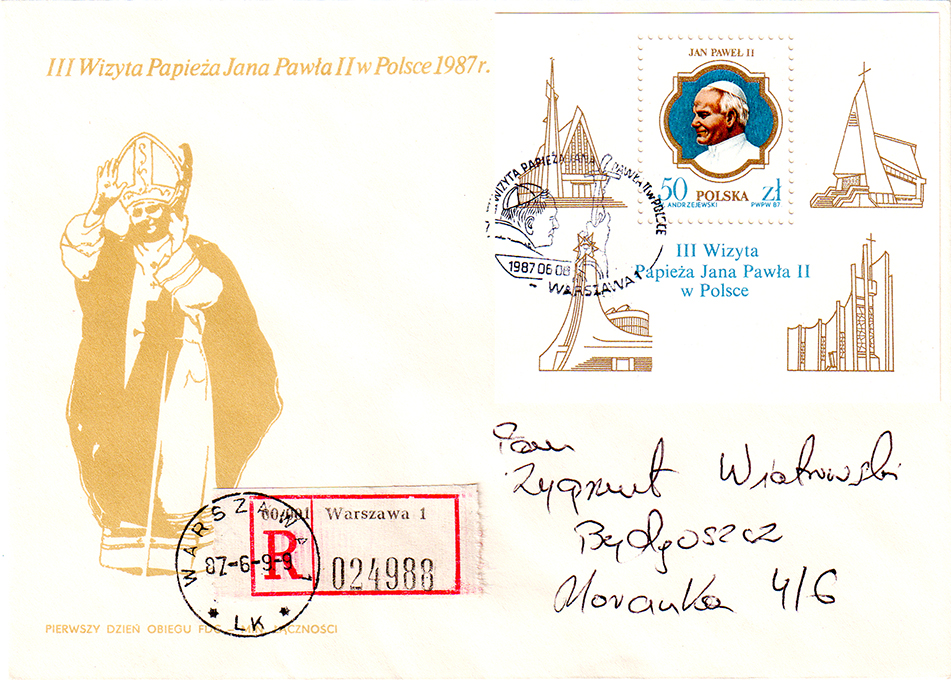 III Wizyta Papieża Jana Pawła II w Polsce 1987 r.
JAN PAWEŁ II
50 POLSKA zł
ANDRZEJEWSKI PWPW 87
III WIZYTA PAPIEŻA JANA PAWŁA II W POLSCE
1987 06 08
- WARSZAWA 1 -
III Wizyta
Papieża Jana Pawła II
w Polsce
Pan
Zygmunt Wiatrowski
Bydgoszcz
4/6
00-001 Warszawa 1
R 024988
WARSZAWA 1
87-6-9-9
* LK *
PIERWSZY DZIEŃ OBIEGU FDC – MIN. ŁĄCZNOŚCI